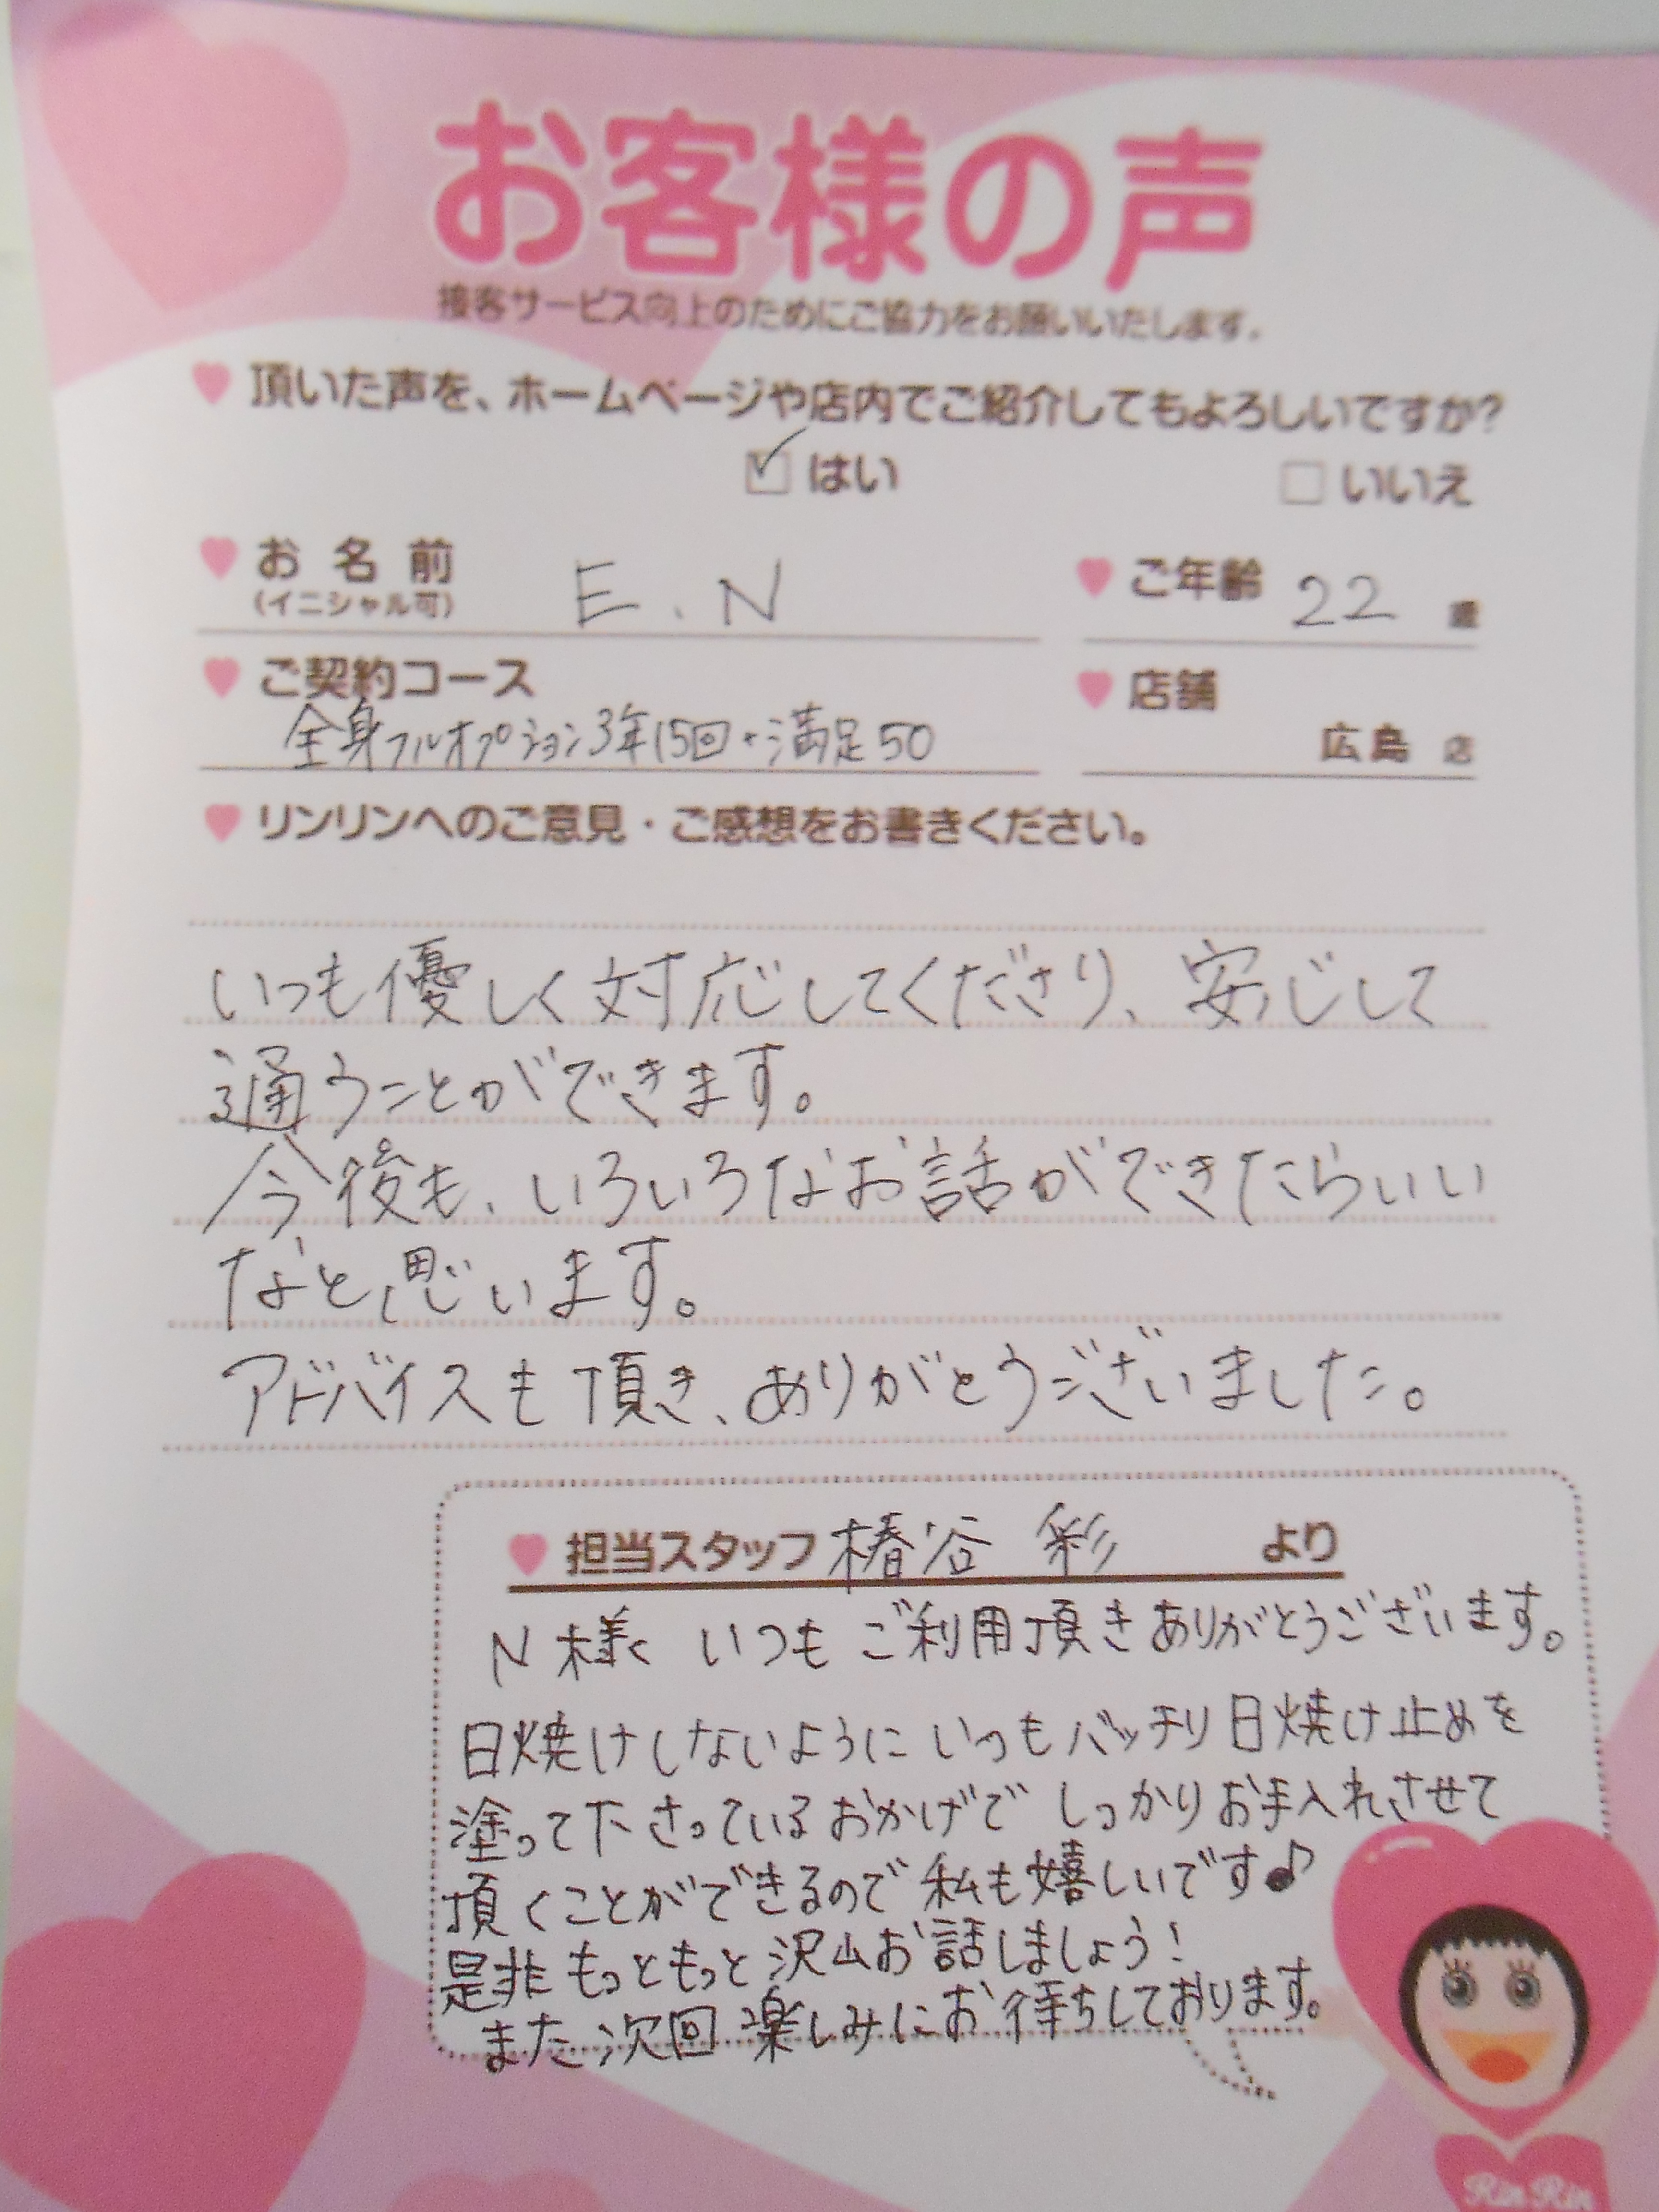 お客様の声
接客サービス向上のためにご協力をお願いいたします。
頂いた声を、ホームページや店内でご紹介してもよろしいですか?
はい いいえ
お名前 E.N ご年齢 22 歳
(イニシャル可)
ご契約コース 店舗
全身フルオプション3年15回+満足50 広島 店
リンリンへのご意見・ご感想をお書きください。
いつも優しく対応してくださり、安心して
通うことができます。
今後も、いろいろなお話ができたらいい
なと思います。
アドバイスも頂き、ありがとうございました。
担当スタッフ 椿谷 彩 より
N様 いつもご利用頂きありがとうございます。
日焼けしないようにいつもバッチリ日焼け止めを
塗って下さっているおかげでしっかりお手入れさせて
頂くことができるので私も嬉しいです♪
是非もっともっと沢山お話しましょう!
また次回楽しみにお待ちしております。
Rin Rin